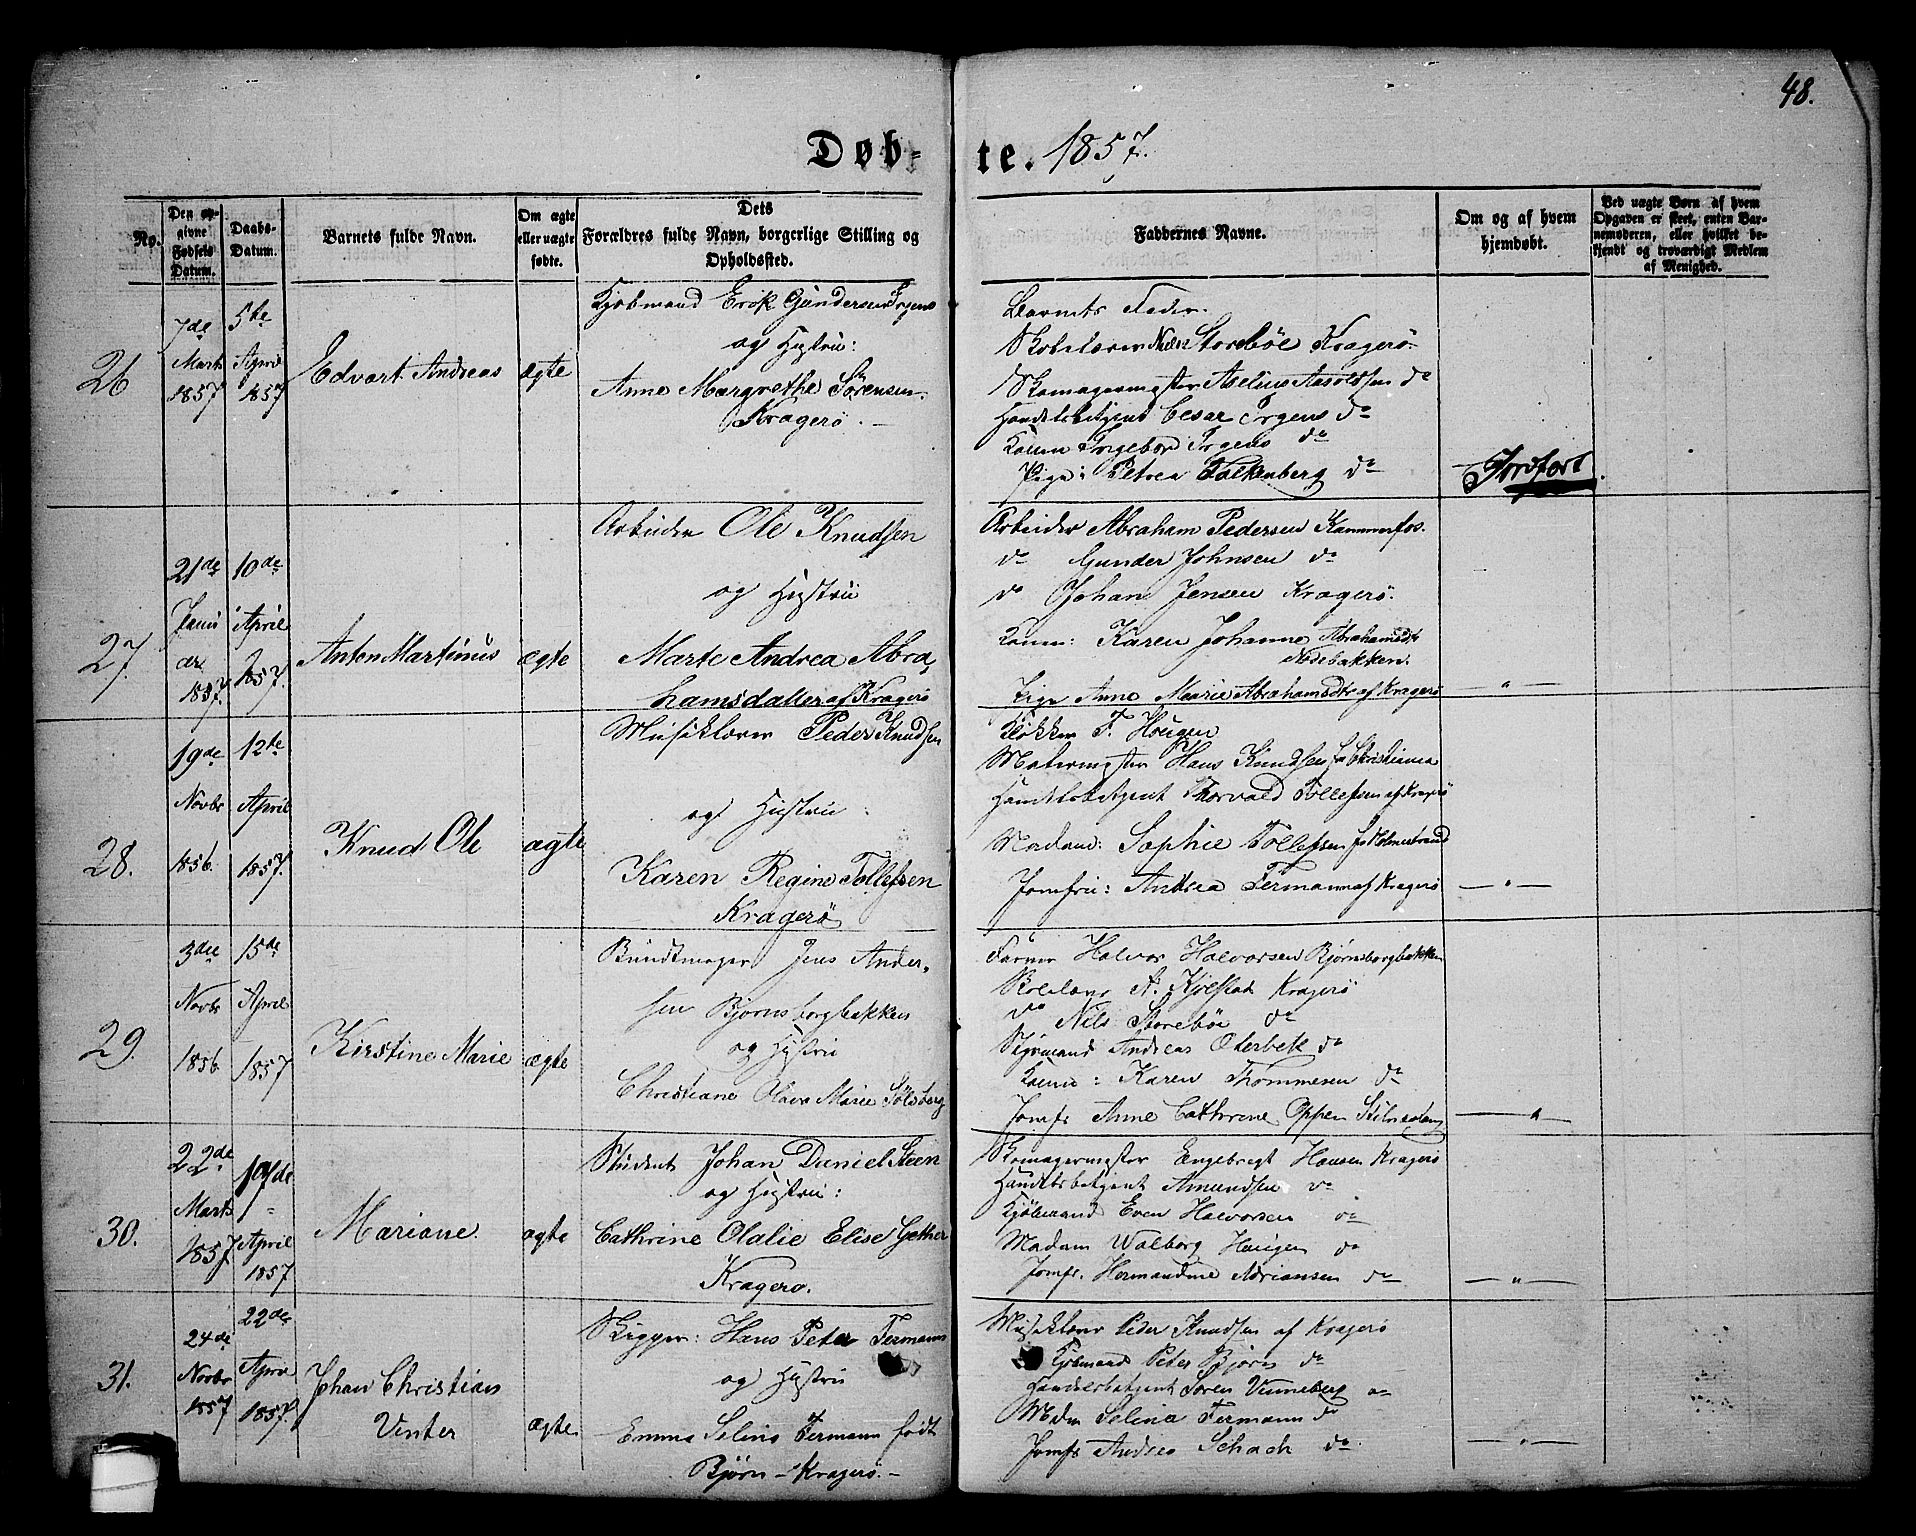 48.
Døb-te. 1857.
No.
Den opgivne Fødsels Datum.
Daabs-Datum.
Barnets fulde Navn.
Om ægte eller uægte fødte.
Dets Forældres fulde Navn, borgerlige Stilling og Opholdssted.
Faddernes Navne.
Om og af hvem hjemdøbt.
Ved uægte Børn af hvem Opgaven er skeet, enten Barnemoderen, eller hvilket bekjendt og troværdigt Medlem af Menighed.
26
7de Marts 1857
5te April 1857
Edvart Andreas
ægte
Kjøbmand Erik Gundersen Irgens
og Hustru:
Anne Margrethe Sørensen.
Kragerø.
Barnets Fader.
Skolelærer Niels Storebøe Kragerø.
Skomagermester Aselius Aasoldsen do
Handelsbetjent Cesar Irgens do
Konen Ingebor Irgens do
Pige: Petrea Falkenberg do
27.
21de Januar 1857.
10de April 1857.
Anton Martinus
ægte
Arbeider Ole Knudsen
og Hustru
Marte Andrea Abra,
hamsdatter af Kragerø
Arbeider Abraham Pedersen Kammerfos.
do Gunder Johnsen do
do Johan Jensen Kragerø.
Konen: Karen Johanne Abrahamsdtr
Nodebakken.
Pige Anne Marie Abrahamsdtr af Kragerø
28.
19de Novbr 1856.
12te April 1857.
Knud Ole
ægte
Musiklærer Peder Knudsen
og Hustru:
Karen Regine Tollefsen
Kragerø
Klokker F. Hougen
Malermester Hans Knudsen fa Christiania
Handelsbetjent Thorvald Tollefsen af Kragerø
Madam: Sophie Tollefsen fa Holmestrand
Jomfru: Andrea Fermann af Kragerø
29.
3die Novbr 1856.
15de April 1857
Kirstine Marie
ægte
Bundtmager Jens Ander,
sen Bjørnsborgbakken
og Hustru
Christiane Olava Marie Sølsberg
Farver Halvor Halvorsen Bjørnsborgbakken
Skolelærer A. Kjølstad Kragerø
do Nils Storebøe do
Styrmand Andreas Oterbek do
Konen: Karen Thommesen do
Jomfr Anne Cathrine Oppen
30.
22de Marts 1857
April 1857
Mariane.
ægte
Student Johan Daniel Steen
og Hustru:
Cathrine Olalie Elise Gether
Kragerø.
Skomagermester Engebregt Hansen Kragerø
Handelsbetjent Amundsen do
Kjøbmand Even Halvorsen do
Madam Walborg Hougen do
Jomfr. Hermandine Adriansen do
31.
24de Novbr 1857
22de April 1857.
Johan Christian
Vinter
ægte
Skipper: Hans Peter Fermann
og Hustru
Emma Selina Fermann født
Bjørn - Kragerø.-
Musiklærer Peder Knudsen af Kragerø
Kjøbmand Peter Bjørn do
Handelsbetjent Søren Vinneberg do
Mdm Selina Fermann do
Jomfr Andrea Schach do